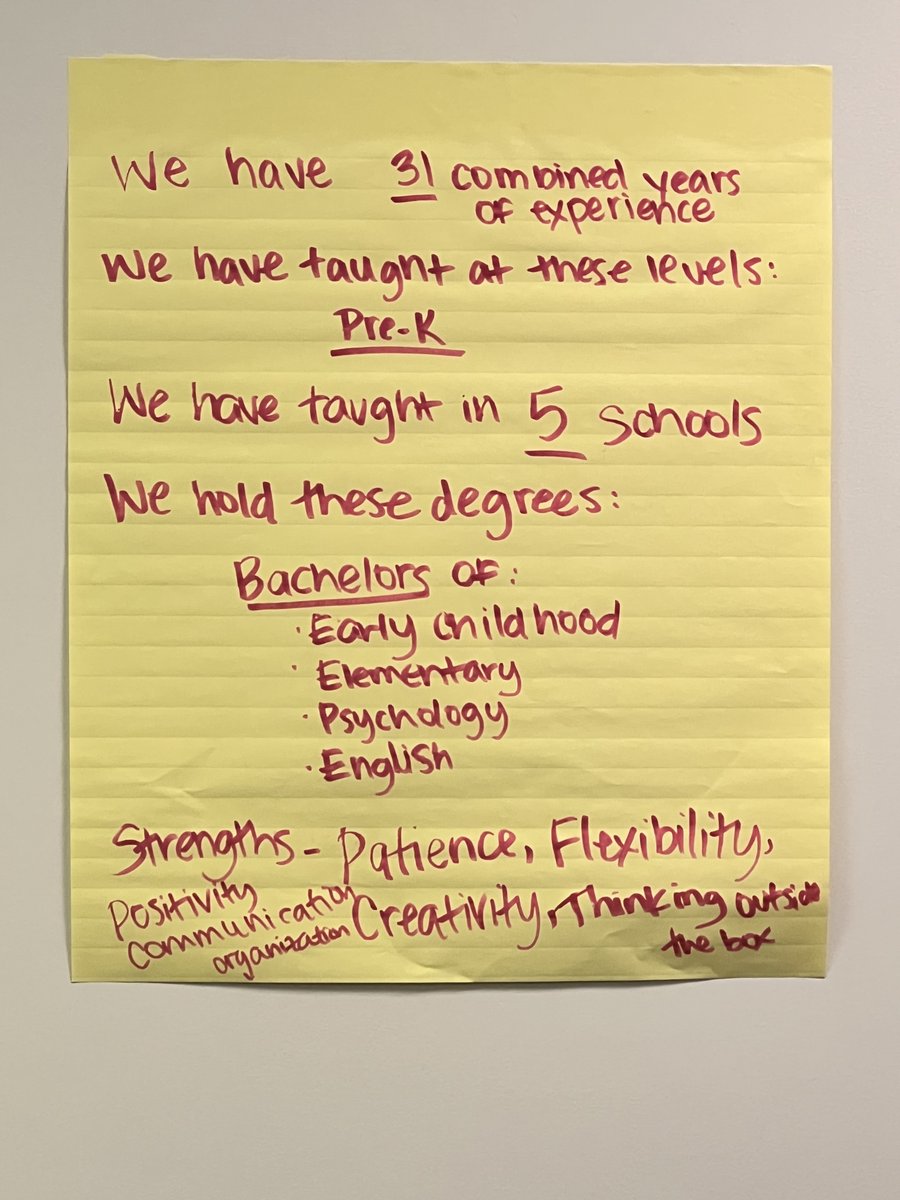 We have 31 combined years
of experience
We have taught at these levels:
Pre-K
We have taught in 5 Schools
We hold these degrees:
Bachelors of:
· Early Childhood
· Elementary
· Psychology
· English
Strengths - Patience, Flexibility,
Positivity
Communication Creativity, Thinking outside
organization the box